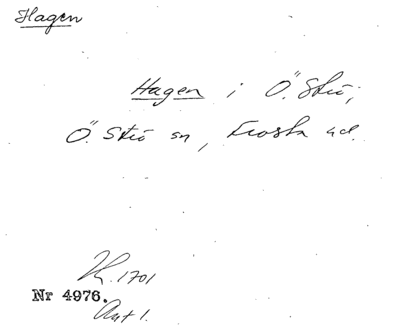 Hagen
Hagen i Ö. Strö,
Ö. Strö sn, Frosta hd.
K. 1701
Nr 4976.
Avt 1.